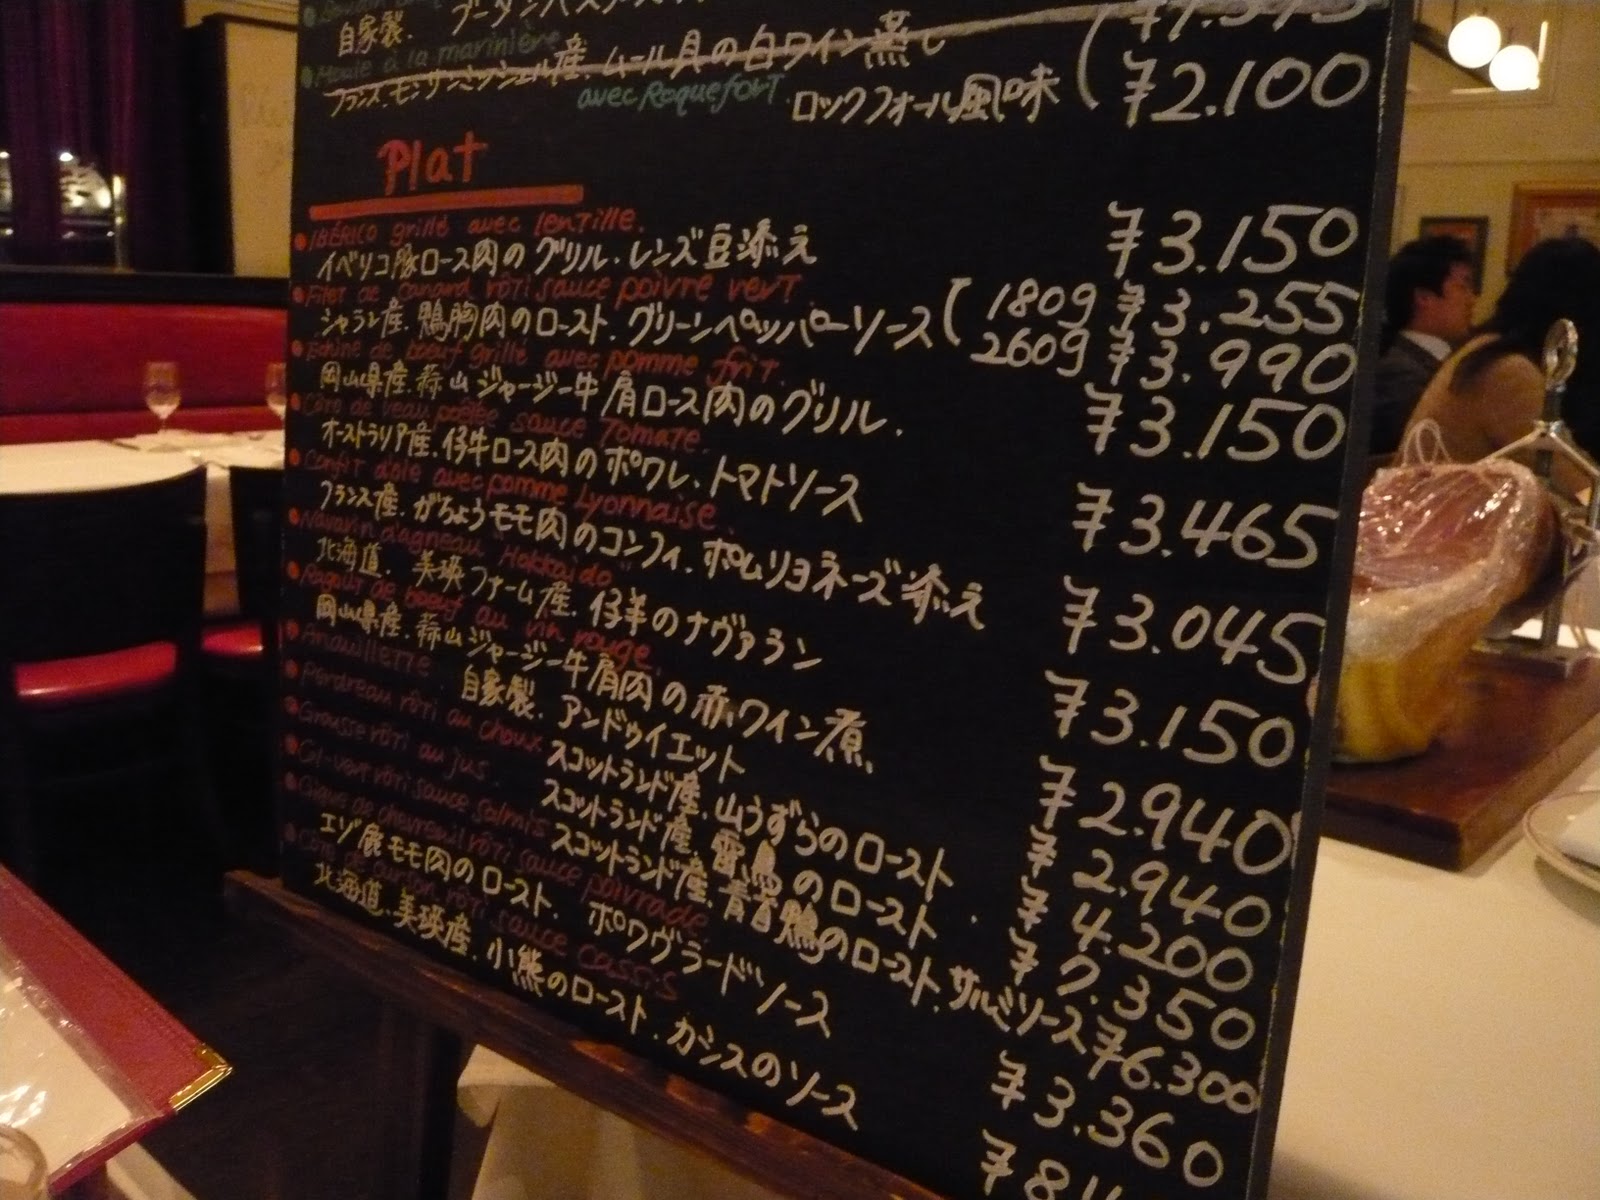 自家製. ブーダン
¥1.575
Moule à la marinière
フランス.モンサンミッシェル産.ムール貝の白ワイン蒸し
avec Roquefort. ロックフォール風味 ¥2.100
Plat
IBÉRICO grillé avec lentille.
イベリコ豚ロース肉のグリル.レンズ豆添え ¥3.150
Filet de canard rôti sauce poivre vert.
シャラン産.鴨胸肉のロースト.グリーンペッパーソース 180g ¥3.255
260g ¥3.990
Echine de boeuf grillé avec pomme frit.
岡山県産.蒜山ジャージー牛肩ロース肉のグリル. ¥3.150
Côte de veau poêlée sauce tomate.
オーストラリア産.仔牛ロース肉のポワレ.トマトソース ¥3.465
Confit d'oie avec pomme Lyonnaise.
フランス産.がちょうモモ肉のコンフィ.ポムリヨネーズ添え ¥3.045
Navarin d'agneau "Hokkaido"
北海道.美瑛ファーム産.仔羊のナヴァラン ¥3.150
Ragoût de boeuf au vin rouge.
岡山県産.蒜山ジャージー牛肩肉の赤ワイン煮. ¥2.940
Andouillette 自家製.アンドゥイエット ¥2.940
Perdreau rôti au choux スコットランド産.山うずらのロースト ¥4.200
Grousse rôti au jus. スコットランド産.雷鳥のロースト. ¥7.350
Col-vert rôti sauce salmis スコットランド産.青首鴨のロースト.サルミソース ¥6.300
Gigue de chevreuil rôti sauce poivrade.
エゾ鹿モモ肉のロースト. ポワヴラードソース ¥3.360
Côte de ourson rôti sauce cassis
北海道.美瑛産.小熊のロースト.カシスのソース